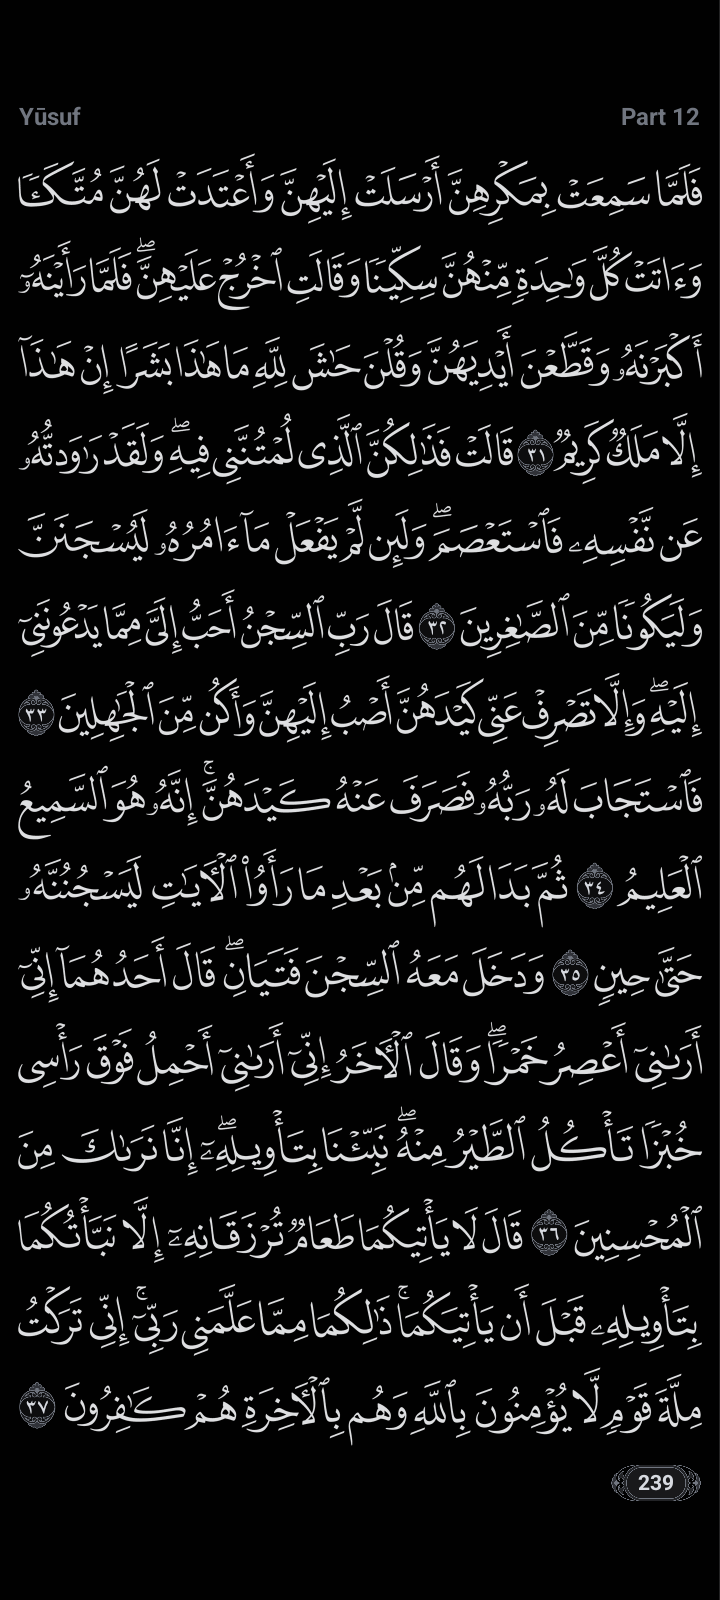 Yūsuf Part 12
فَلَمَّا سَمِعَتْ بِمَكْرِهِنَّ أَرْسَلَتْ إِلَيْهِنَّ وَأَعْتَدَتْ لَهُنَّ مُتَّكَـًٔا
وَءَاتَتْ كُلَّ وَٰحِدَةٍ مِّنْهُنَّ سِكِّينًا وَقَالَتِ ٱخْرُجْ عَلَيْهِنَّ ۖ فَلَمَّا رَأَيْنَهُۥٓ
أَكْبَرْنَهُۥ وَقَطَّعْنَ أَيْدِيَهُنَّ وَقُلْنَ حَٰشَ لِلَّهِ مَا هَٰذَا بَشَرًا إِنْ هَٰذَآ
إِلَّا مَلَكٌ كَرِيمٌ ٣١ قَالَتْ فَذَٰلِكُنَّ ٱلَّذِى لُمْتُنَّنِى فِيهِ ۖ وَلَقَدْ رَٰوَدتُّهُۥ
عَن نَّفْسِهِۦ فَٱسْتَعْصَمَ ۖ وَلَئِن لَّمْ يَفْعَلْ مَآ ءَامُرُهُۥ لَيُسْجَنَنَّ
وَلَيَكُونًا مِّنَ ٱلصَّٰغِرِينَ ٣٢ قَالَ رَبِّ ٱلسِّجْنُ أَحَبُّ إِلَىَّ مِمَّا يَدْعُونَنِىٓ
إِلَيْهِ ۖ وَإِلَّا تَصْرِفْ عَنِّى كَيْدَهُنَّ أَصْبُ إِلَيْهِنَّ وَأَكُن مِّنَ ٱلْجَٰهِلِينَ ٣٣
فَٱسْتَجَابَ لَهُۥ رَبُّهُۥ فَصَرَفَ عَنْهُ كَيْدَهُنَّ ۚ إِنَّهُۥ هُوَ ٱلسَّمِيعُ
ٱلْعَلِيمُ ٣٤ ثُمَّ بَدَا لَهُم مِّنۢ بَعْدِ مَا رَأَوُا۟ ٱلْـَٔايَٰتِ لَيَسْجُنُنَّهُۥ
حَتَّىٰ حِينٍ ٣٥ وَدَخَلَ مَعَهُ ٱلسِّجْنَ فَتَيَانِ ۖ قَالَ أَحَدُهُمَآ إِنِّىٓ
أَرَىٰنِىٓ أَعْصِرُ خَمْرًا ۖ وَقَالَ ٱلْـَٔاخَرُ إِنِّىٓ أَرَىٰنِىٓ أَحْمِلُ فَوْقَ رَأْسِى
خُبْزًا تَأْكُلُ ٱلطَّيْرُ مِنْهُ ۖ نَبِّئْنَا بِتَأْوِيلِهِۦٓ ۖ إِنَّا نَرَىٰكَ مِنَ
ٱلْمُحْسِنِينَ ٣٦ قَالَ لَا يَأْتِيكُمَا طَعَامٌ تُرْزَقَانِهِۦٓ إِلَّا نَبَّأْتُكُمَا
بِتَأْوِيلِهِۦ قَبْلَ أَن يَأْتِيَكُمَا ۚ ذَٰلِكُمَا مِمَّا عَلَّمَنِى رَبِّىٓ ۚ إِنِّى تَرَكْتُ
مِلَّةَ قَوْمٍ لَّا يُؤْمِنُونَ بِٱللَّهِ وَهُم بِٱلْـَٔاخِرَةِ هُمْ كَٰفِرُونَ ٣٧
239